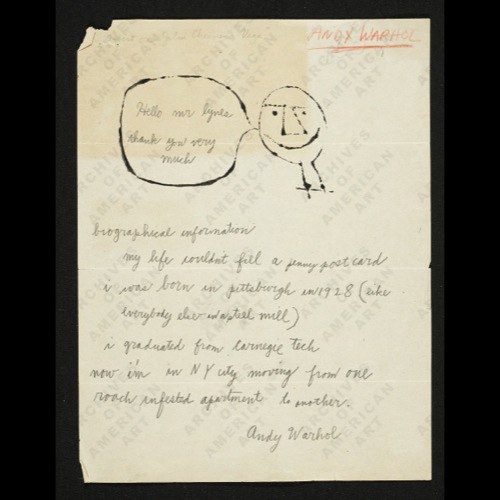 ANDY WARHOL
Hello mr lynes
thank you very
much
biographical information
my life couldnt fill a penny post card
i was born in pittsburgh in 1928 (like
everybody else - in a steel mill)
i graduated from carnegie tech
now i'm in NY city moving from one
roach infested apartment to another.
Andy Warhol
ARCHIVES
OF
AMERICAN
ART